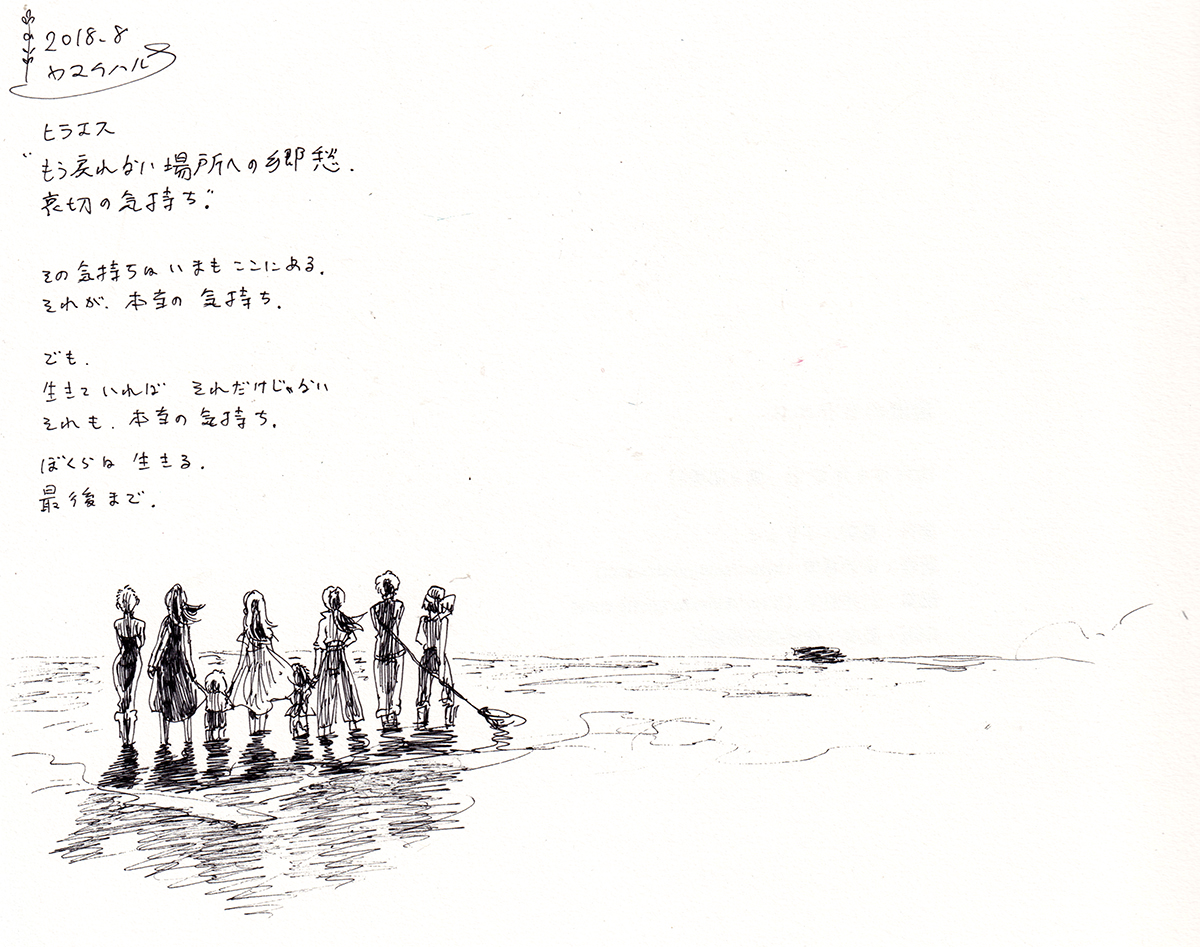 2018.8
ヤスラハル
ヒラエス
“もう戻れない場所への郷愁.
哀切の気持ち”
その気持ちはいまもここにある.
それが.本当の気持ち.
でも.
生きていれば それだけじゃない
それも.本当の気持ち.
ぼくらは生きる.
最後まで.